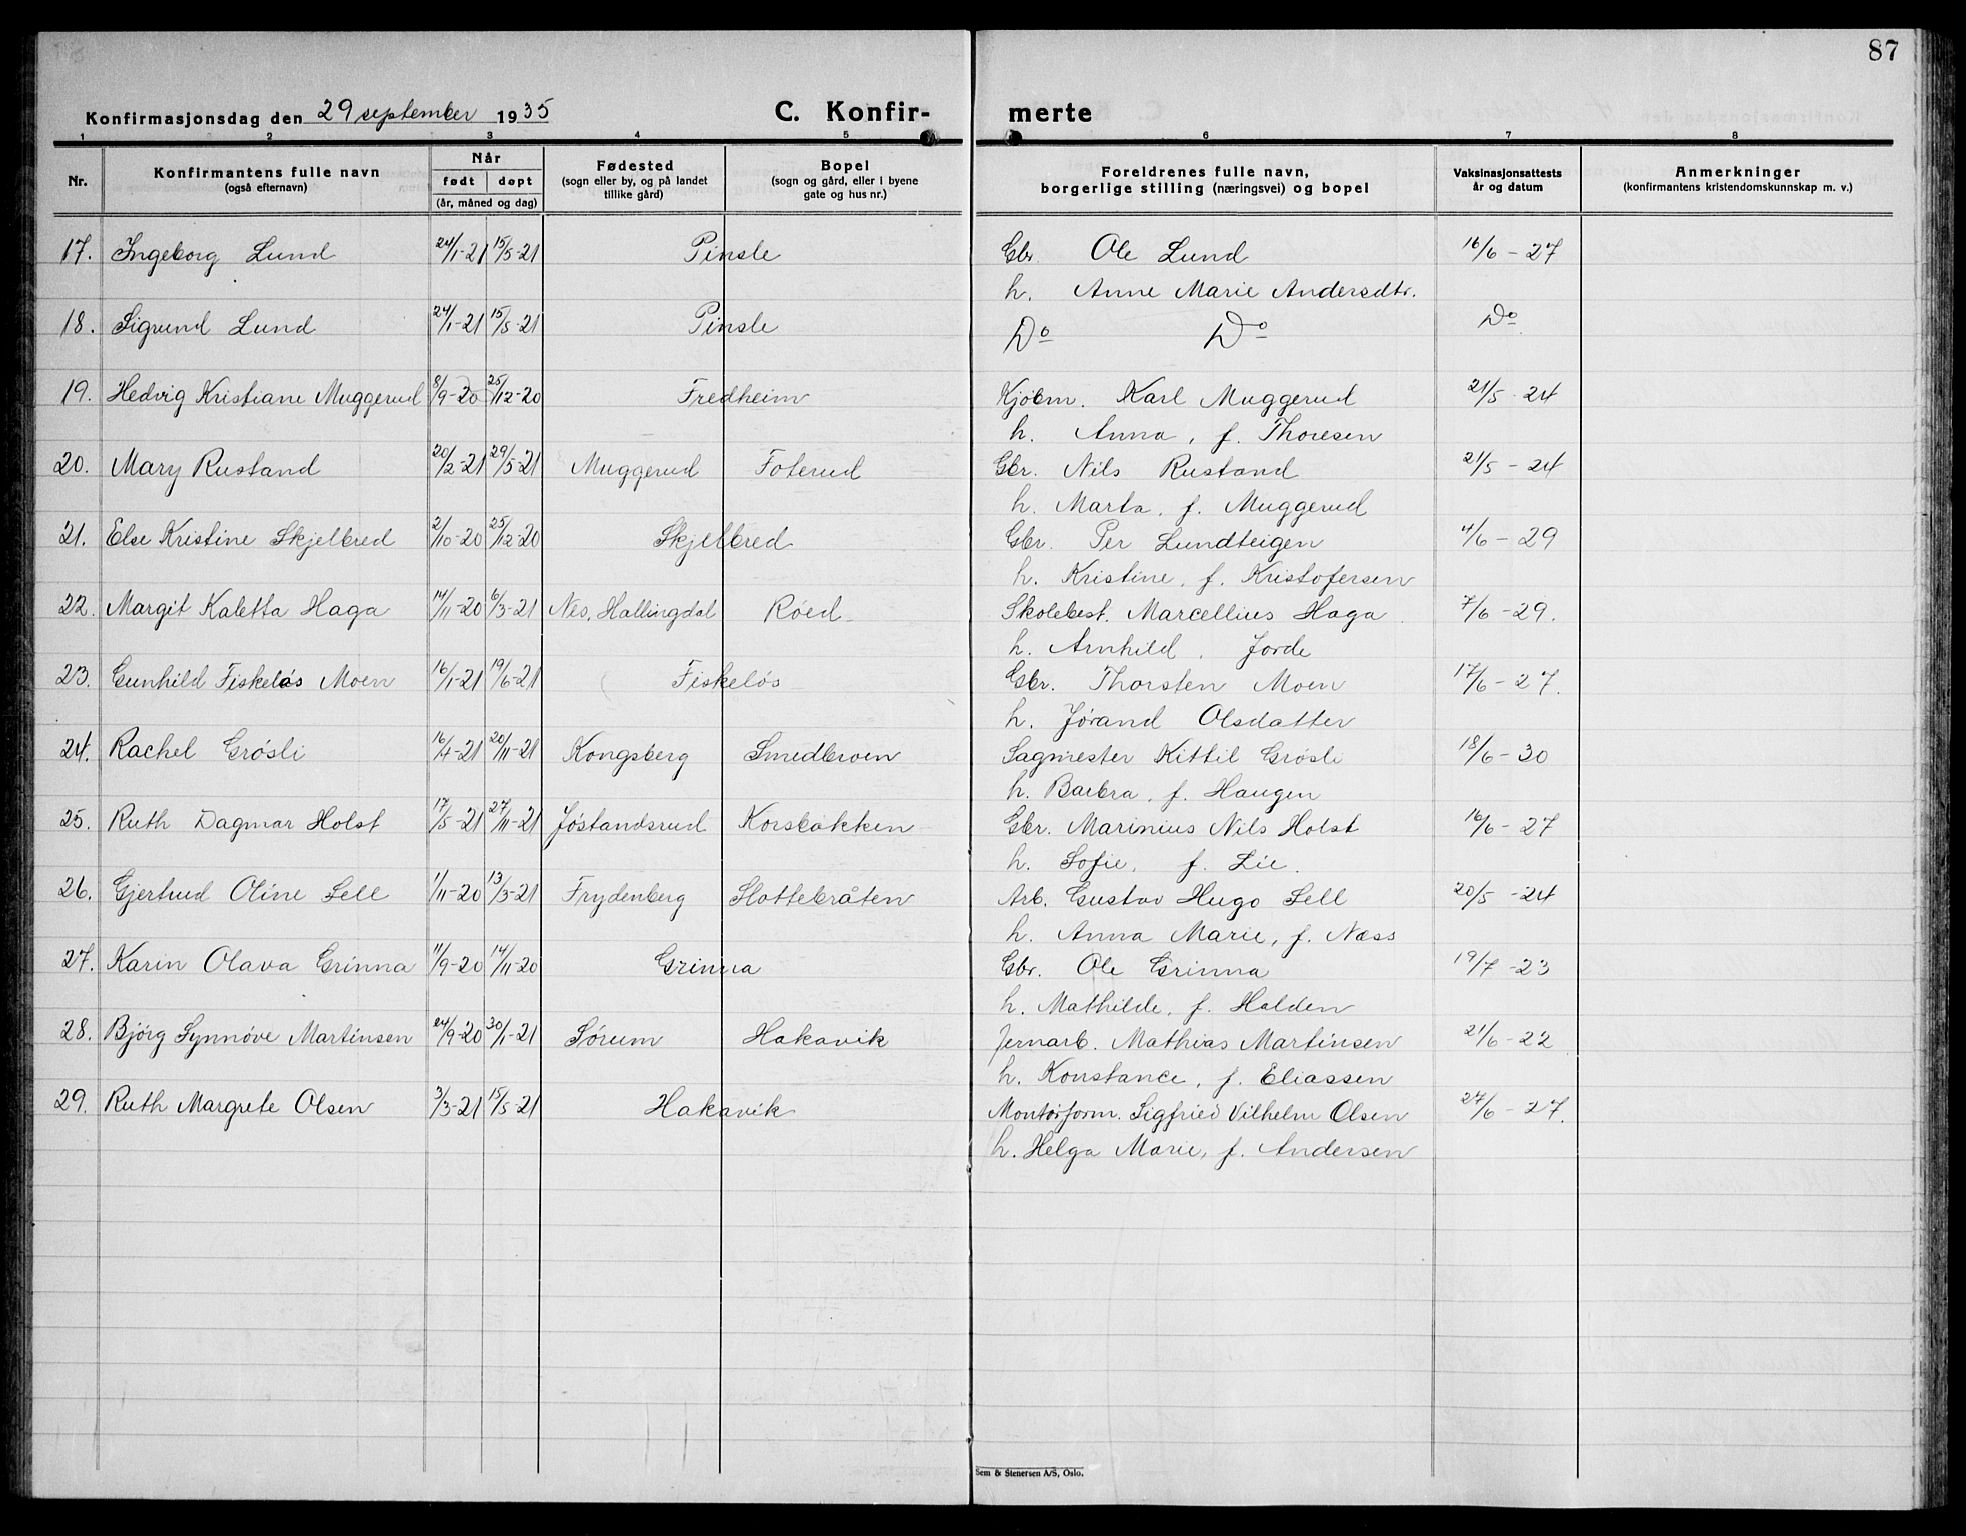 87
Konfirmasjonsdag den 29 september 1935
C. Konfir-
merte
1 2 3 4 5 6 7 8
Nr.
Konfirmantens fulle navn
(også efternavn)
Når
født døpt
(år, måned og dag)
Fødested
(sogn eller by, og på landet
tillike gård)
Bopel
(sogn og gård, eller i byene
gate og hus nr.)
Foreldrenes fulle navn,
borgerlige stilling (næringsvei) og bopel
Vaksinasjonsattests
år og datum
Anmerkninger
(konfirmantens kristendomskunnskap m. v.)
17. Ingeborg Lund 24/1-21 15/5-21 Pinsle Gbr. Ole Lund 16/6-27
h. Anne Marie Andersdtr.
18. Sigrund Lund 24/1-21 15/5-21 Pinsle Do Do Do
19. Hedvig Kristiane Muggerud 8/9-20 25/12-20 Fredheim Kjøbm. Karl Muggerud 21/5-24
h. Anna, f. Thoresen
20. Mary Rustand 20/2-21 29/5-21 Muggerud Foterud Gbr. Nils Rustand 21/5-24
h. Marta, f. Muggerud
21. Else Kristine Skjelbred 2/10-20 25/12-20 Skjelbred Gbr. Per Lundteigen 4/6-29
h. Kristine, f. Kristofersen
22. Margit Kaletta Haga 14/11-20 6/3-21 Nes, Hallingdal Røed Skolebest. Marcellius Haga 7/6-29.
h. Arnhild, Jorde
23. Gunhild Fiskeløs Moen 16/1-21 19/6-21 Fiskeløs Gbr. Thorsten Moen 17/6-27.
h. Jørand Olsdatter
24. Rachel Grøsli 16/4-21 20/11-21 Kongsberg Smedbroen Sagmester Kittil Grøsli 18/6-30
h. Barbra, f. Haugen
25. Ruth Dagmar Holst 17/5-21 27/11-21 Jøstandsrud Korsbakken Gbr. Marinius Nils Holst 16/6-27
h. Sofie, f. Lie.
26. Gjertrud Oline Sell 1/11-20 13/3-21 Frydenberg Slottebråten Arb. Gustav Hugo Sell 20/5-24
h. Anna Marie, f. Næss
27. Karin Olava Grinna 11/9-20 14/11-20 Grinna Gbr. Ole Grinna 19/7-23
h. Mathilde, f. Halden
28. Bjørg Synnøve Martinsen 24/9-20 30/1-21 Sørum Hakavik Jernarb. Mathias Martinsen 21/6-22
h. Konstance, f. Eliassen
29. Ruth Margrete Olsen 3/3-21 15/5-21 Hakavik Montørform. Sigfried Vilhelm Olsen 27/6-27.
h. Helga Marie, f. Andersen
Sem & Stenersen A/S, Oslo.